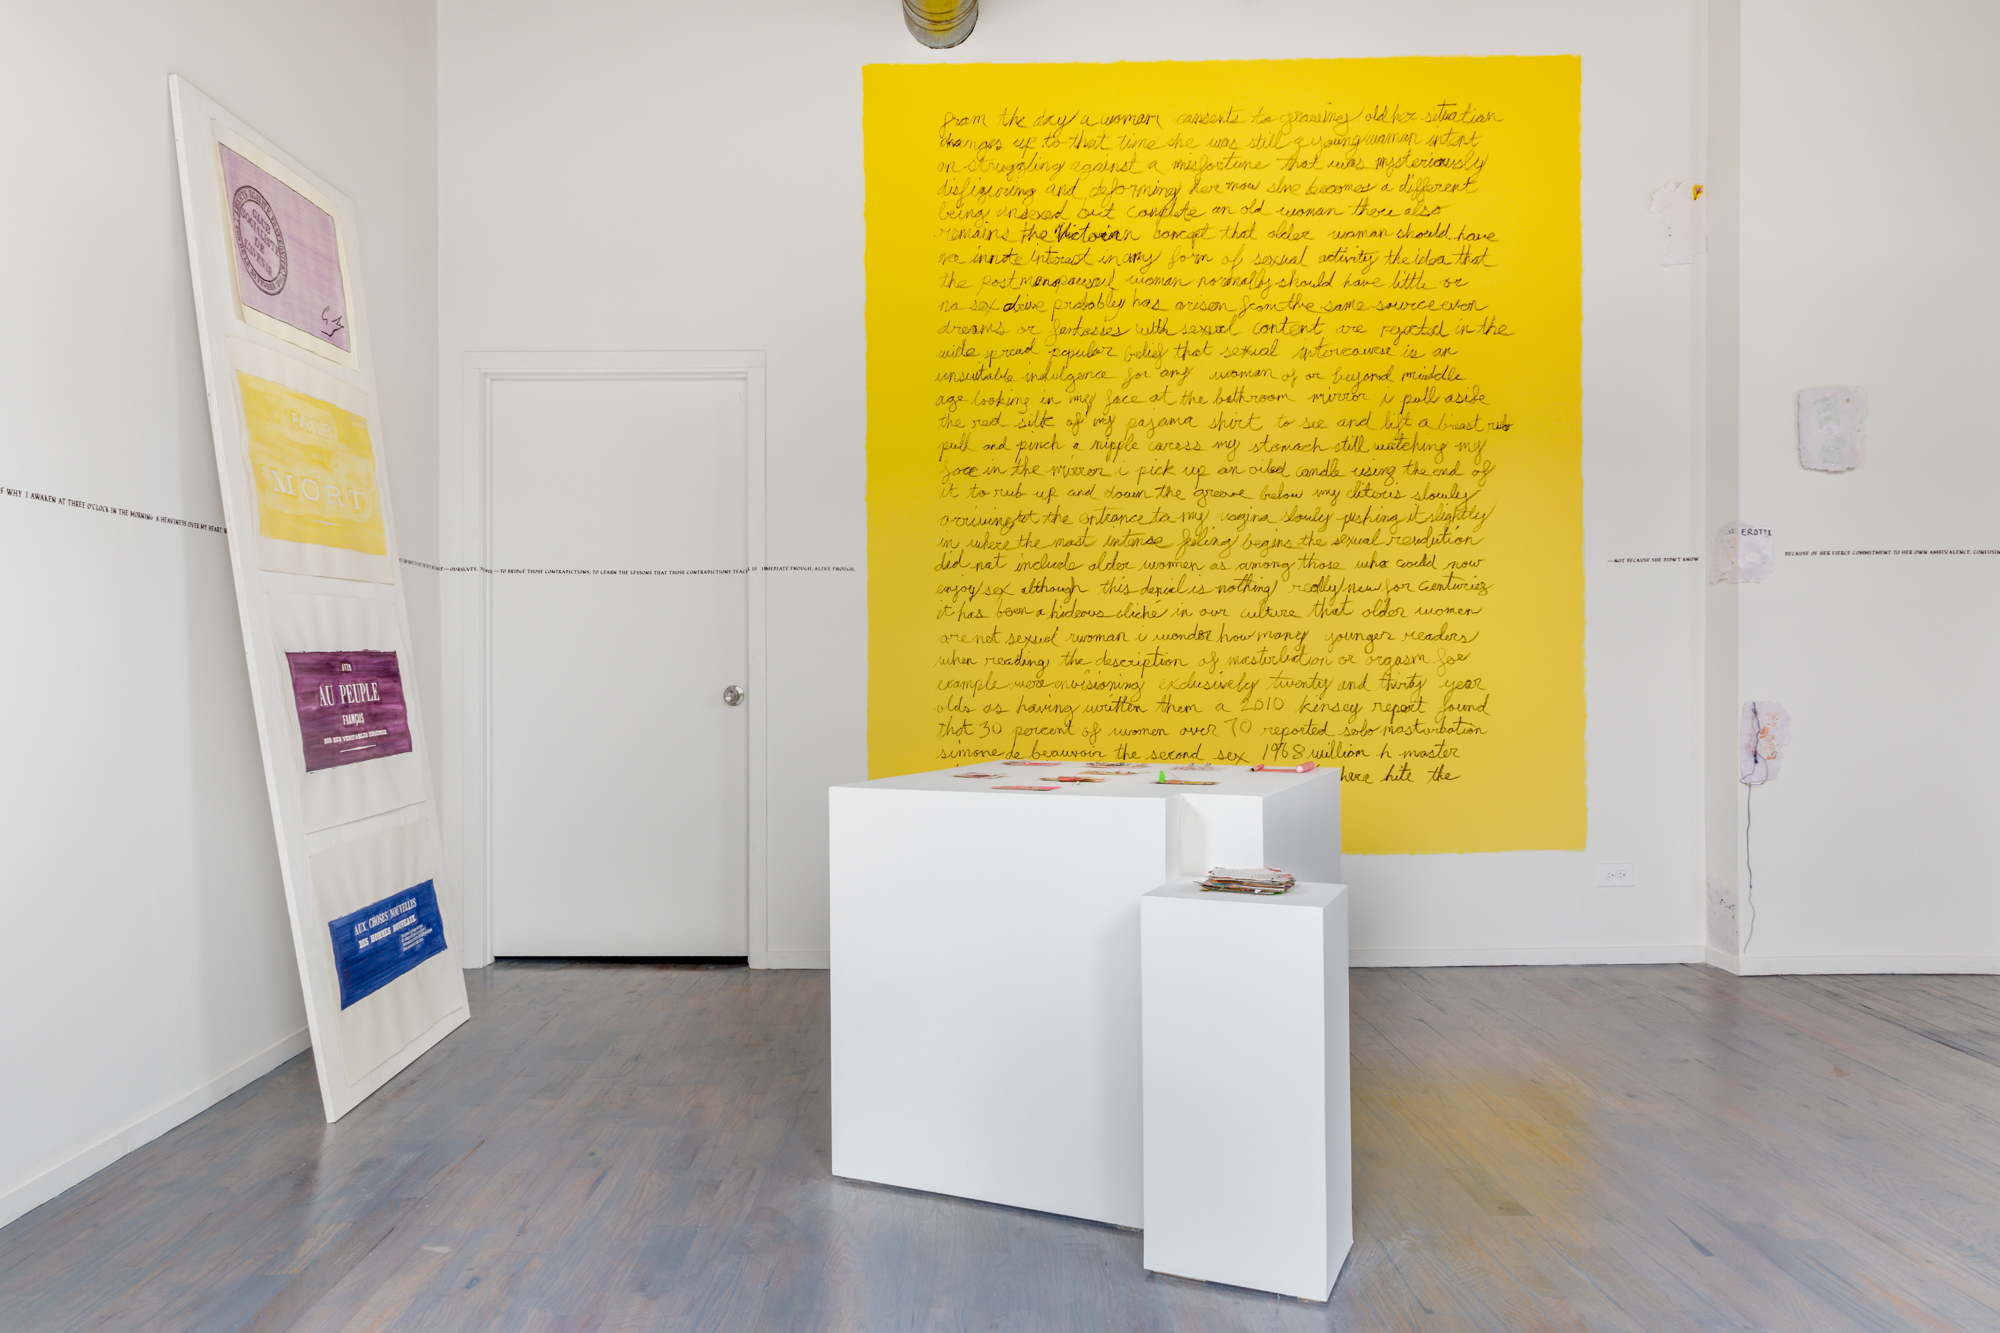 CLUB
SOCIALISTE
DE
MORT
AVIS
AU PEUPLE
FRANÇAIS
SUR SES VERITABLES ENNEMIS.
AUX CHOSES NOUVELLES
DES HOMMES NOUVEAUX.
F WHY I AWAKEN AT THREE O'CLOCK IN THE MORNING, A HEAVINESS OVER MY HEART,
—OURSELVES, —TO BRIDGE THOSE CONTRADICTIONS, TO LEARN THE LESSONS THAT THOSE CONTRADICTIONS TEACH IS IMMEDIATE ENOUGH, ALIVE ENOUGH,
from the day a woman consents to growing old her situation
changes up to that time she was still a young woman intent
on struggling against a misfortune that was mysteriously
disfiguring and deforming her now she becomes a different
being unsexed but complete an old woman there also
remains the Victorian concept that older woman should have
no innate interest in any form of sexual activity the idea that
the postmenopausal woman normally should have little or
no sex drive probably has arisen from the same source even
dreams or fantasies with sexual content are rejected in the
wide spread popular belief that sexual intercourse is an
unsuitable indulgence for any woman of or beyond middle
age looking in my face at the bathroom mirror i pull aside
the red silk of my pajama shirt to see and lift a breast rub
pull and pinch a nipple caress my stomach still watching my
face in the mirror i pick up an oiled candle using the end of
it to rub up and down the groove below my clitoris slowly
arriving at the entrance to my vagina slowly pushing it slightly
in where the most intense feeling begins the sexual revolution
did not include older women as among those who could now
enjoy sex although this denial is nothing really new for centuries
it has been a hideous cliché in our culture that older women
are not sexual woman i wonder how many younger readers
when reading the description of masturbation or orgasm for
example were envisioning exclusively twenty and thirty year
olds as having written them a 2010 kinsey report found
that 30 percent of women over 70 reported solo masturbation
simone de beauvoir the second sex 1968 william h master
shere hite the
—NOT BECAUSE SHE DIDN'T KNOW
EROTI
BECAUSE OF HER FIERCE COMMITMENT TO HER OWN AMBIVALENCE,